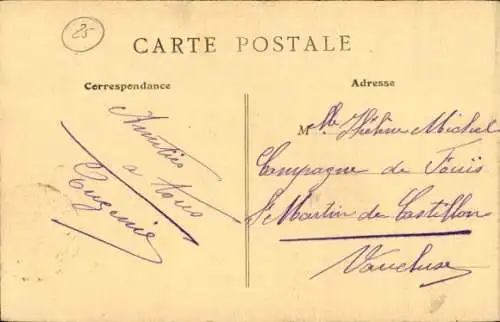 25
CARTE POSTALE
Correspondance
Amitiés
a tous
Eugenie
Adresse
Mlle Hélène Michel
Campagne de
St Martin de Castillon
Vaucluse